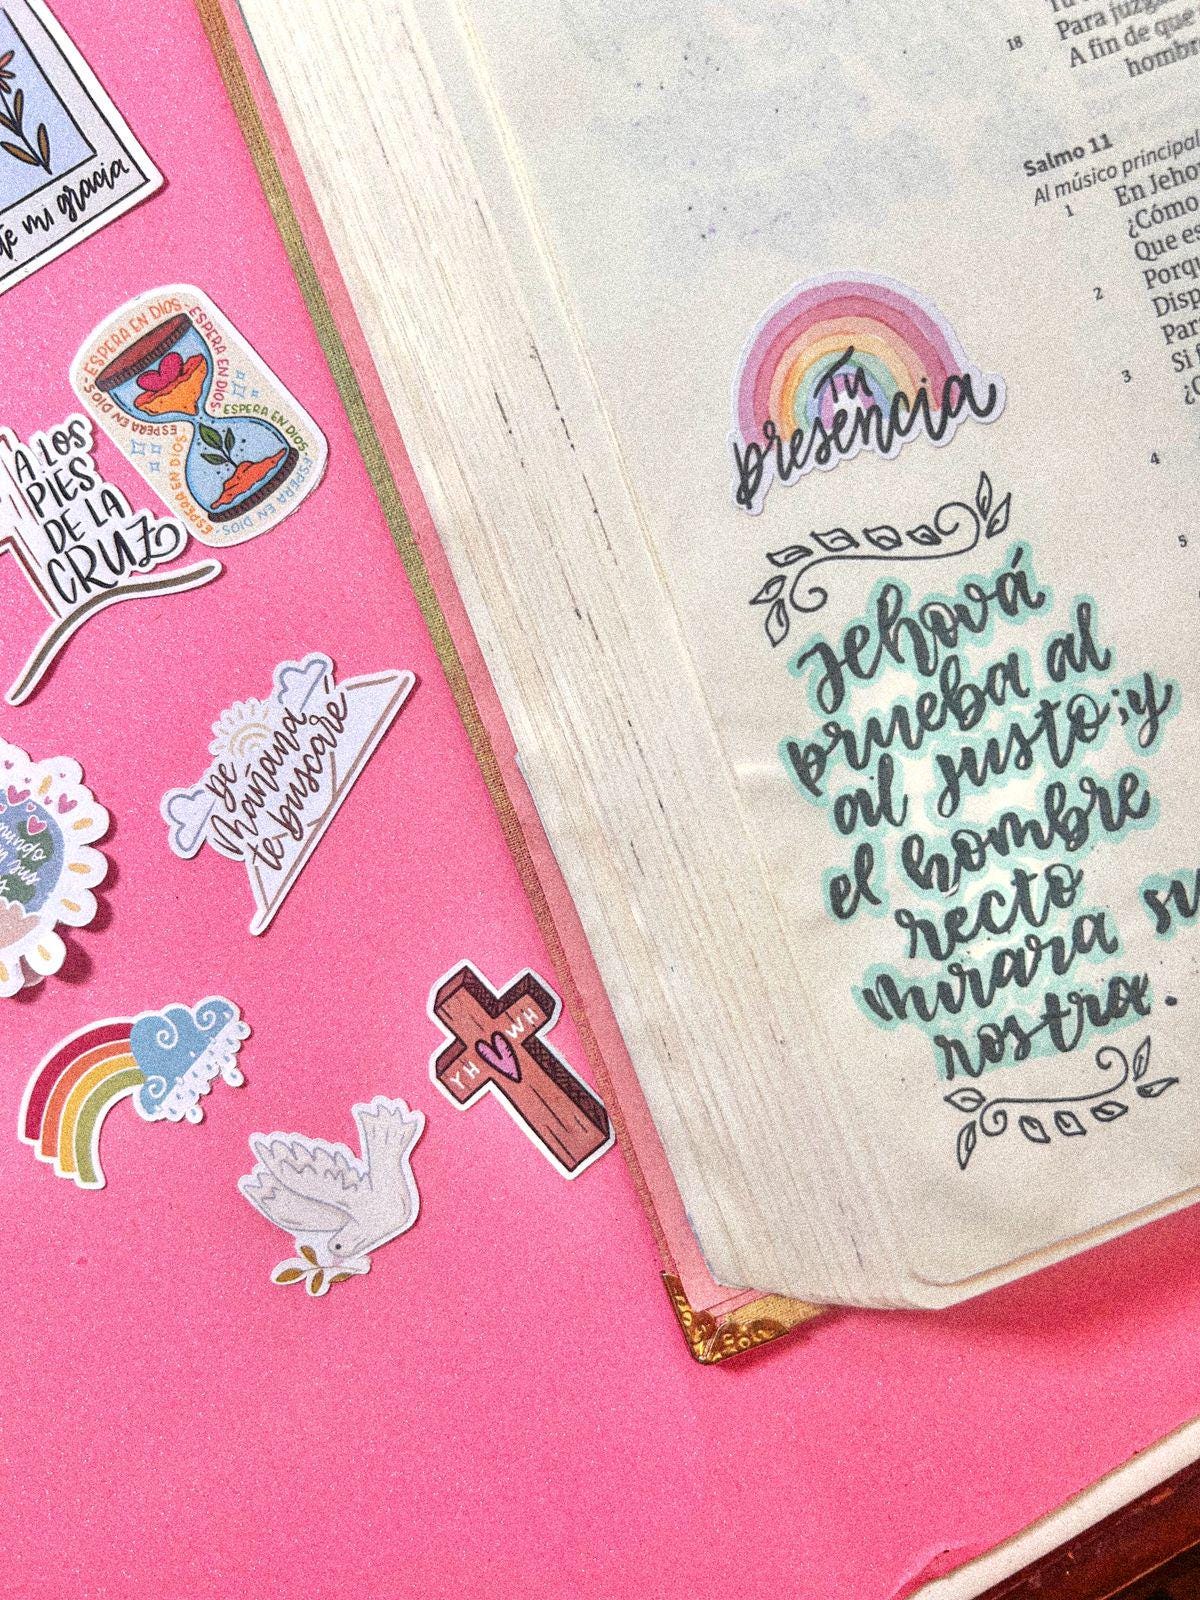 te mi gracia
ESPERA EN DIOS - ESPERA EN DIOS - ESPERA EN DIOS - ESPERA EN DIOS - ESPERA EN DIOS
ESPERA EN DIOS
A LOS
PIES
DE LA
CRUZ
De
Mañana
te buscaré
mundo
YH WH
18
Para juzga
A fin de que
hombr
Salmo 11
Al músico principal
1
En Jeho
¿Cómo
Que es
2
Porqu
Disp
Par
3
Si
4
5
Tu
presencia
Jehová
prueba al
al justo; y
el hombre
recto
mirara su
rostro.